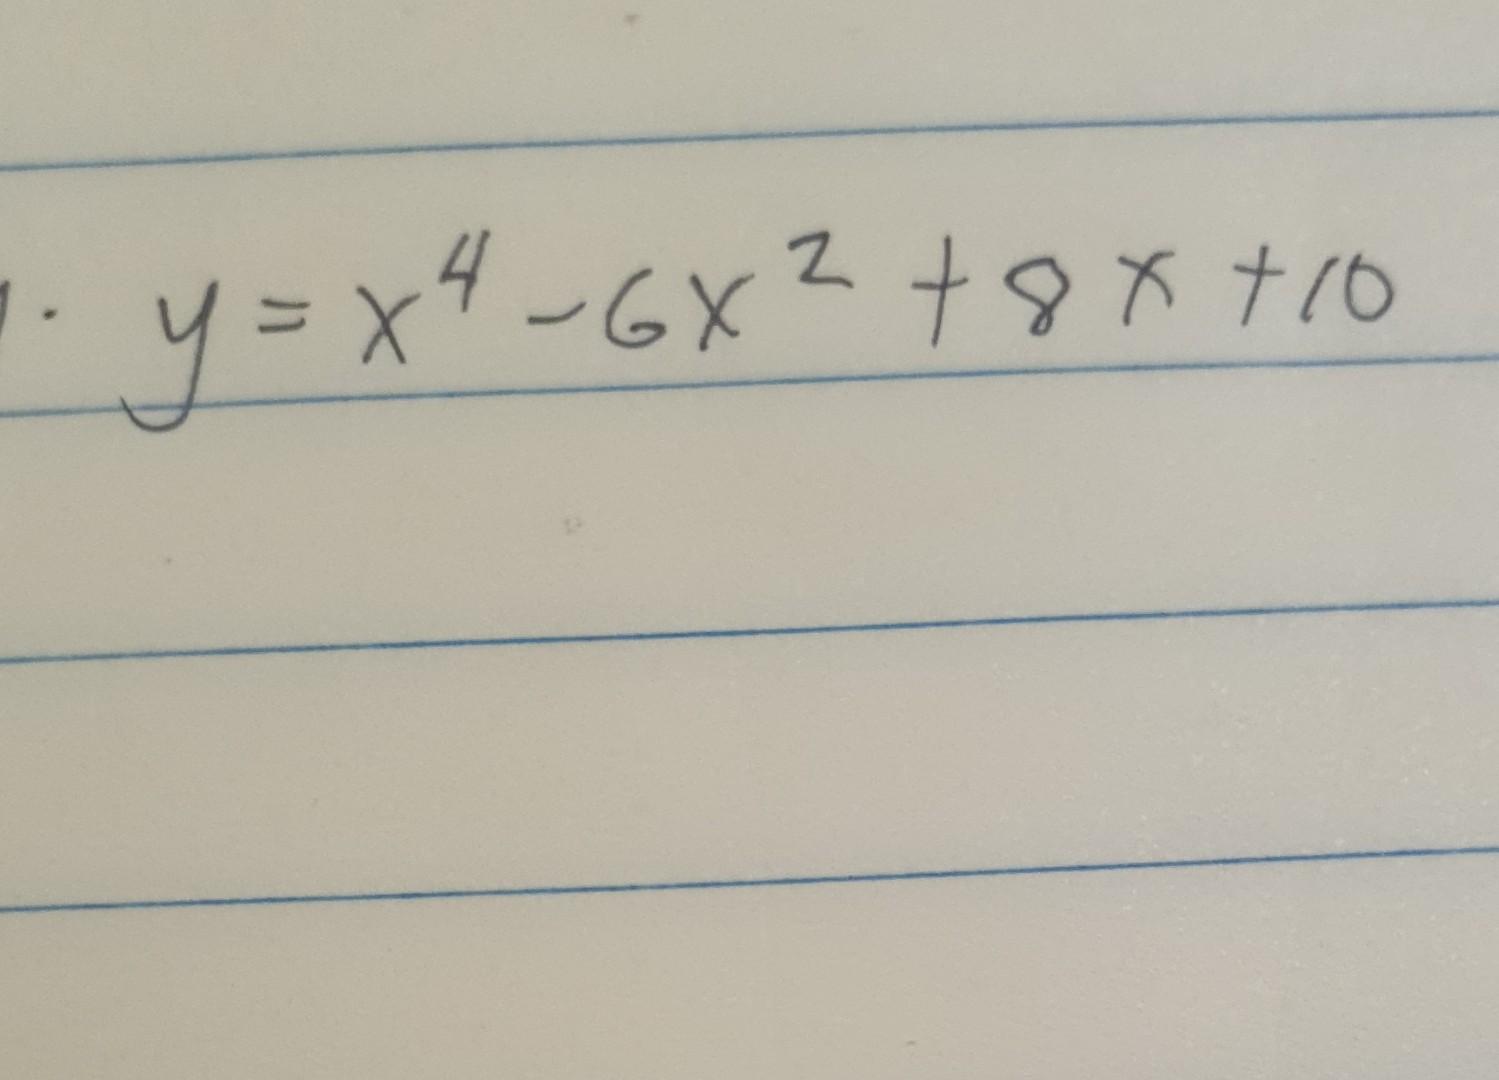 . y = x⁴ - 6x² + 8x + 10